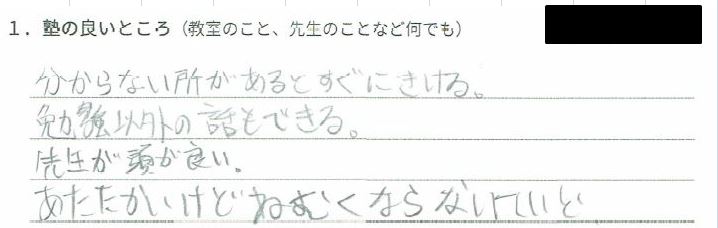 1. 塾の良いところ（教室のこと、先生のことなど何でも）
分からない所があるとすぐにきける。
勉強以外の話もできる。
先生が頭が良い。
あたたかいけどねむくならないていど